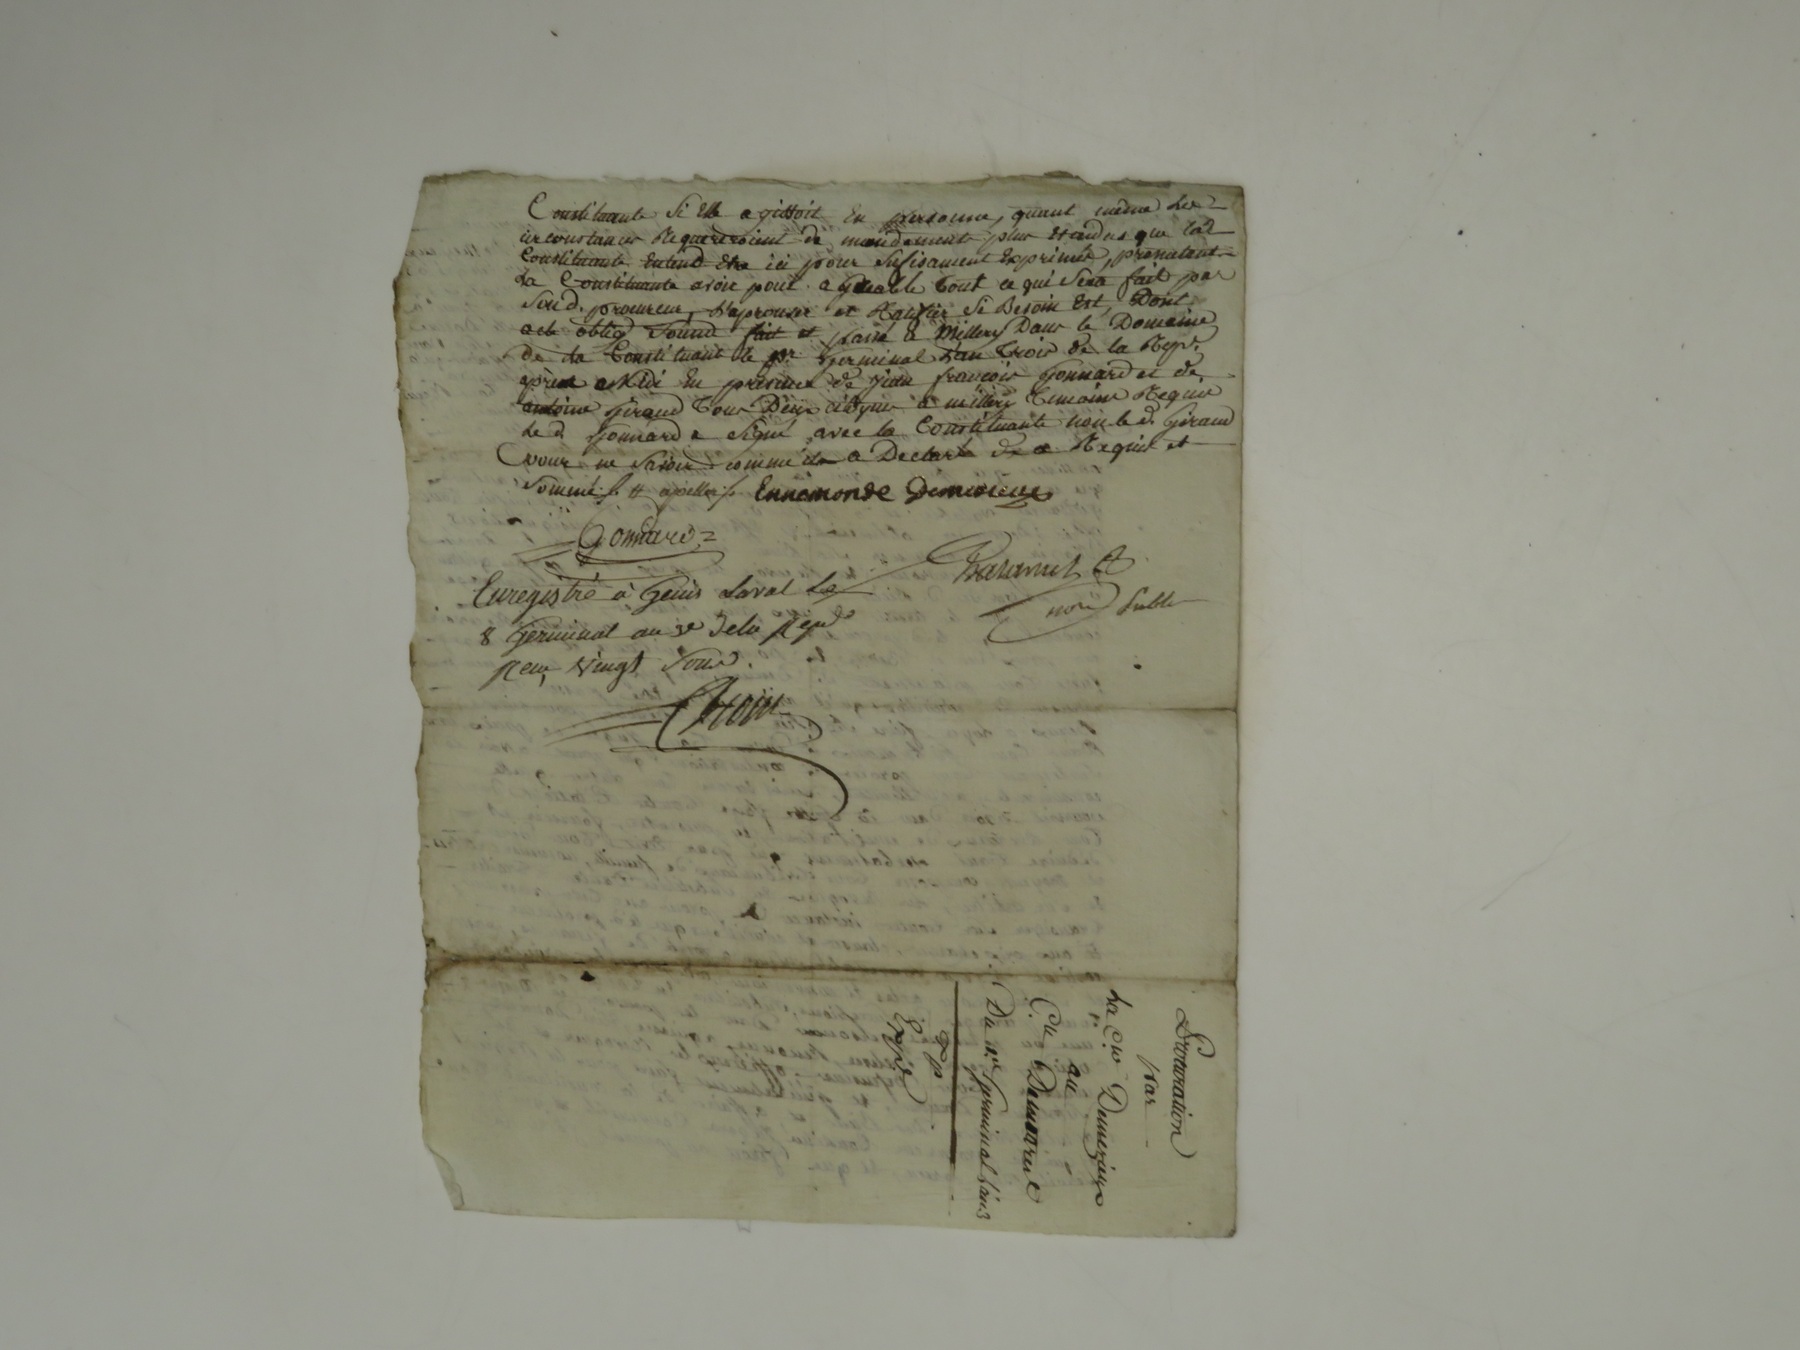 Constituante Si Elle agissoit En personne, quant même les
circonstances Requereroient de mandement plus Etendus que lad
Constituante Entend Etre ici pour sufisament Exprimés, prometant
La Constituante avoir pour agréable Tout ce qui Sera fait par
Sond. procureur, L'aprouver et Ratifier Si Besoin Est, Dont
acte obligé Soumis fait et passé à Millery Dans le Domaine
de la Constituante le pr. Germinal L'an Trois de la Repe.
après Midi En présence de jean françois Gonnard et de
antoine Giraud Tous Deux citoyens à millery Temoins Requis
Le d. Gonnard a Signé avec la Constituante non le d. Giraud
pour ne Savoir comme il a Declaré de ce Requis et
Sommé
Ennemonde Demerieux
Gonnard
Enregistré à Genis Laval Le
8 Germinal an 3e De la Repe
Reçu Vingt Sous.
not. Public
Procuration
Par
La Cne Demerieux
au
Cen
Du 1er Germinal L'an 3
Expéd